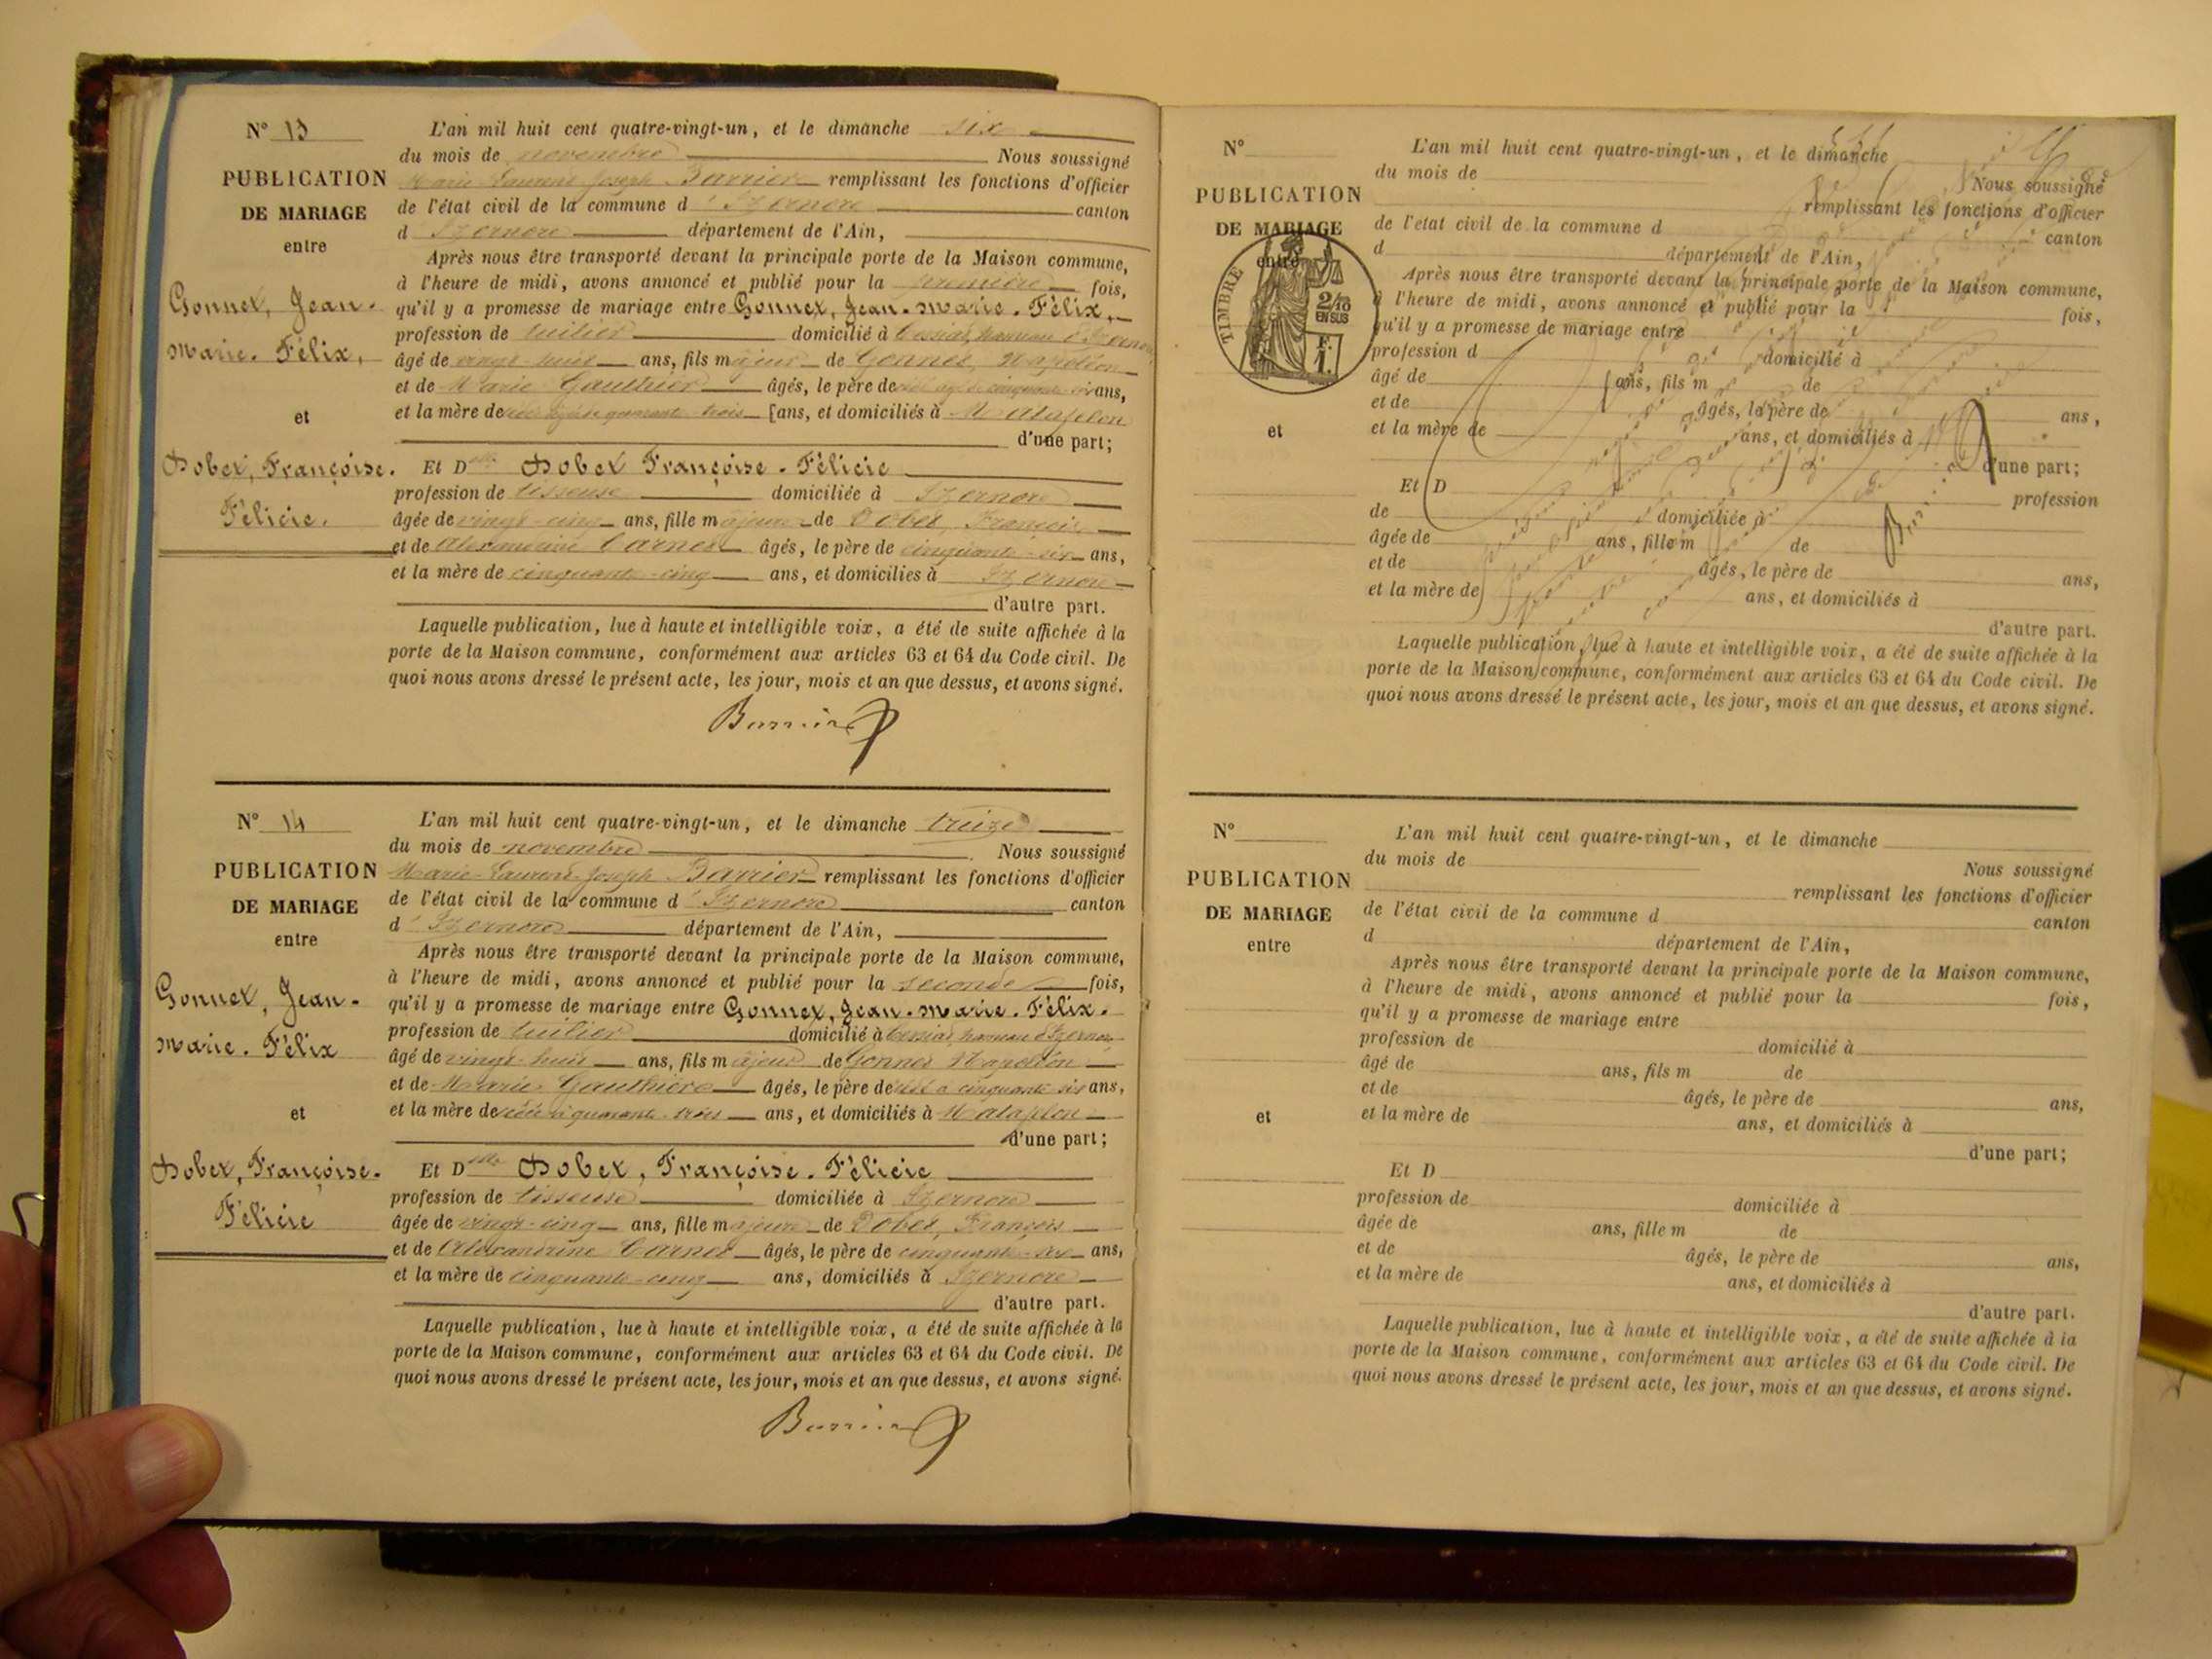 N° 13
PUBLICATION
DE MARIAGE
entre
Gonnet, Jean-
Marie-Félix,
et
Dobet, Françoise-
Félicie.
L'an mil huit cent quatre-vingt-un, et le dimanche six
du mois de novembre Nous soussigné
Marie Laurent Joseph Barrier remplissant les fonctions d'officier
de l'état civil de la commune d'Izernore canton
d'Izernore département de l'Ain,
Après nous être transporté devant la principale porte de la Maison commune,
à l'heure de midi, avons annoncé et publié pour la première fois,
qu'il y a promesse de mariage entre Gonnet, Jean-Marie-Félix,
profession de tuilier domicilié à hameau d'Izernore
âgé de vingt-huit ans, fils majeur de Gonnet, Napoléon
et de Marie Gauthier âgés, le père de cinquante six ans,
et la mère de quarante trois ans, et domiciliés à Matafelon
d'une part;
Et Delle Dobet Françoise-Félicie
profession de tisseuse domiciliée à Izernore
âgée de vingt-cinq ans, fille majeure de Dobet, François
et de Alexandrine Carnet âgés, le père de cinquante-six ans,
et la mère de cinquante-cinq ans, et domiciliés à Izernore
d'autre part.
Laquelle publication, lue à haute et intelligible voix, a été de suite affichée à la
porte de la Maison commune, conformément aux articles 63 et 64 du Code civil. De
quoi nous avons dressé le présent acte, les jour, mois et an que dessus, et avons signé.
Barrier
N° 14
PUBLICATION
DE MARIAGE
entre
Gonnet, Jean-
Marie-Félix
et
Dobet, Françoise-
Félicie
L'an mil huit cent quatre-vingt-un, et le dimanche treize
du mois de novembre Nous soussigné
Marie-Laurent-Joseph Barrier remplissant les fonctions d'officier
de l'état civil de la commune d'Izernore canton
d'Izernore département de l'Ain,
Après nous être transporté devant la principale porte de la Maison commune,
à l'heure de midi, avons annoncé et publié pour la seconde fois,
qu'il y a promesse de mariage entre Gonnet, Jean-Marie-Félix.
profession de tuilier domicilié à hameau d'Izernore
âgé de vingt-huit ans, fils majeur de Gonnet Napoléon
et de Marie Gauthier âgés, le père de cinquante six ans,
et la mère de quarante-trois ans, et domiciliés à Matafelon
d'une part;
Et Delle Dobet, Françoise-Félicie
profession de tisseuse domiciliée à Izernore
âgée de vingt-cinq ans, fille majeure de Dobet, François
et de Alexandrine Carnet âgés, le père de cinquante-six ans,
et la mère de cinquante-cinq ans, domiciliés à Izernore
d'autre part.
Laquelle publication, lue à haute et intelligible voix, a été de suite affichée à la
porte de la Maison commune, conformément aux articles 63 et 64 du Code civil. De
quoi nous avons dressé le présent acte, les jour, mois et an que dessus, et avons signé.
Barrier
N°
PUBLICATION
DE MARIAGE
entre
TIMBRE
2/10
EN SUS
F.
1.
et
L'an mil huit cent quatre-vingt-un, et le dimanche
du mois de Nous soussigné
remplissant les fonctions d'officier
de l'état civil de la commune d canton
d département de l'Ain,
Après nous être transporté devant la principale porte de la Maison commune,
à l'heure de midi, avons annoncé et publié pour la fois,
qu'il y a promesse de mariage entre
profession d domicilié à
âgé de ans, fils m de
et de âgés, le père de ans,
et la mère de ans, et domiciliés à
d'une part;
Et D profession
de domiciliée à
âgée de ans, fille m de
et de âgés, le père de ans,
et la mère de ans, et domiciliés à
d'autre part.
Laquelle publication, lue à haute et intelligible voix, a été de suite affichée à la
porte de la Maison commune, conformément aux articles 63 et 64 du Code civil. De
quoi nous avons dressé le présent acte, les jour, mois et an que dessus, et avons signé.
N°
PUBLICATION
DE MARIAGE
entre
et
L'an mil huit cent quatre-vingt-un, et le dimanche
du mois de Nous soussigné
remplissant les fonctions d'officier
de l'état civil de la commune d canton
d département de l'Ain,
Après nous être transporté devant la principale porte de la Maison commune,
à l'heure de midi, avons annoncé et publié pour la fois,
qu'il y a promesse de mariage entre
profession de domicilié à
âgé de ans, fils m de
et de âgés, le père de ans,
et la mère de ans, et domiciliés à
d'une part;
Et D
profession de domiciliée à
âgée de ans, fille m de
et de âgés, le père de ans,
et la mère de ans, et domiciliés à
d'autre part.
Laquelle publication, lue à haute et intelligible voix, a été de suite affichée à la
porte de la Maison commune, conformément aux articles 63 et 64 du Code civil. De
quoi nous avons dressé le présent acte, les jour, mois et an que dessus, et avons signé.